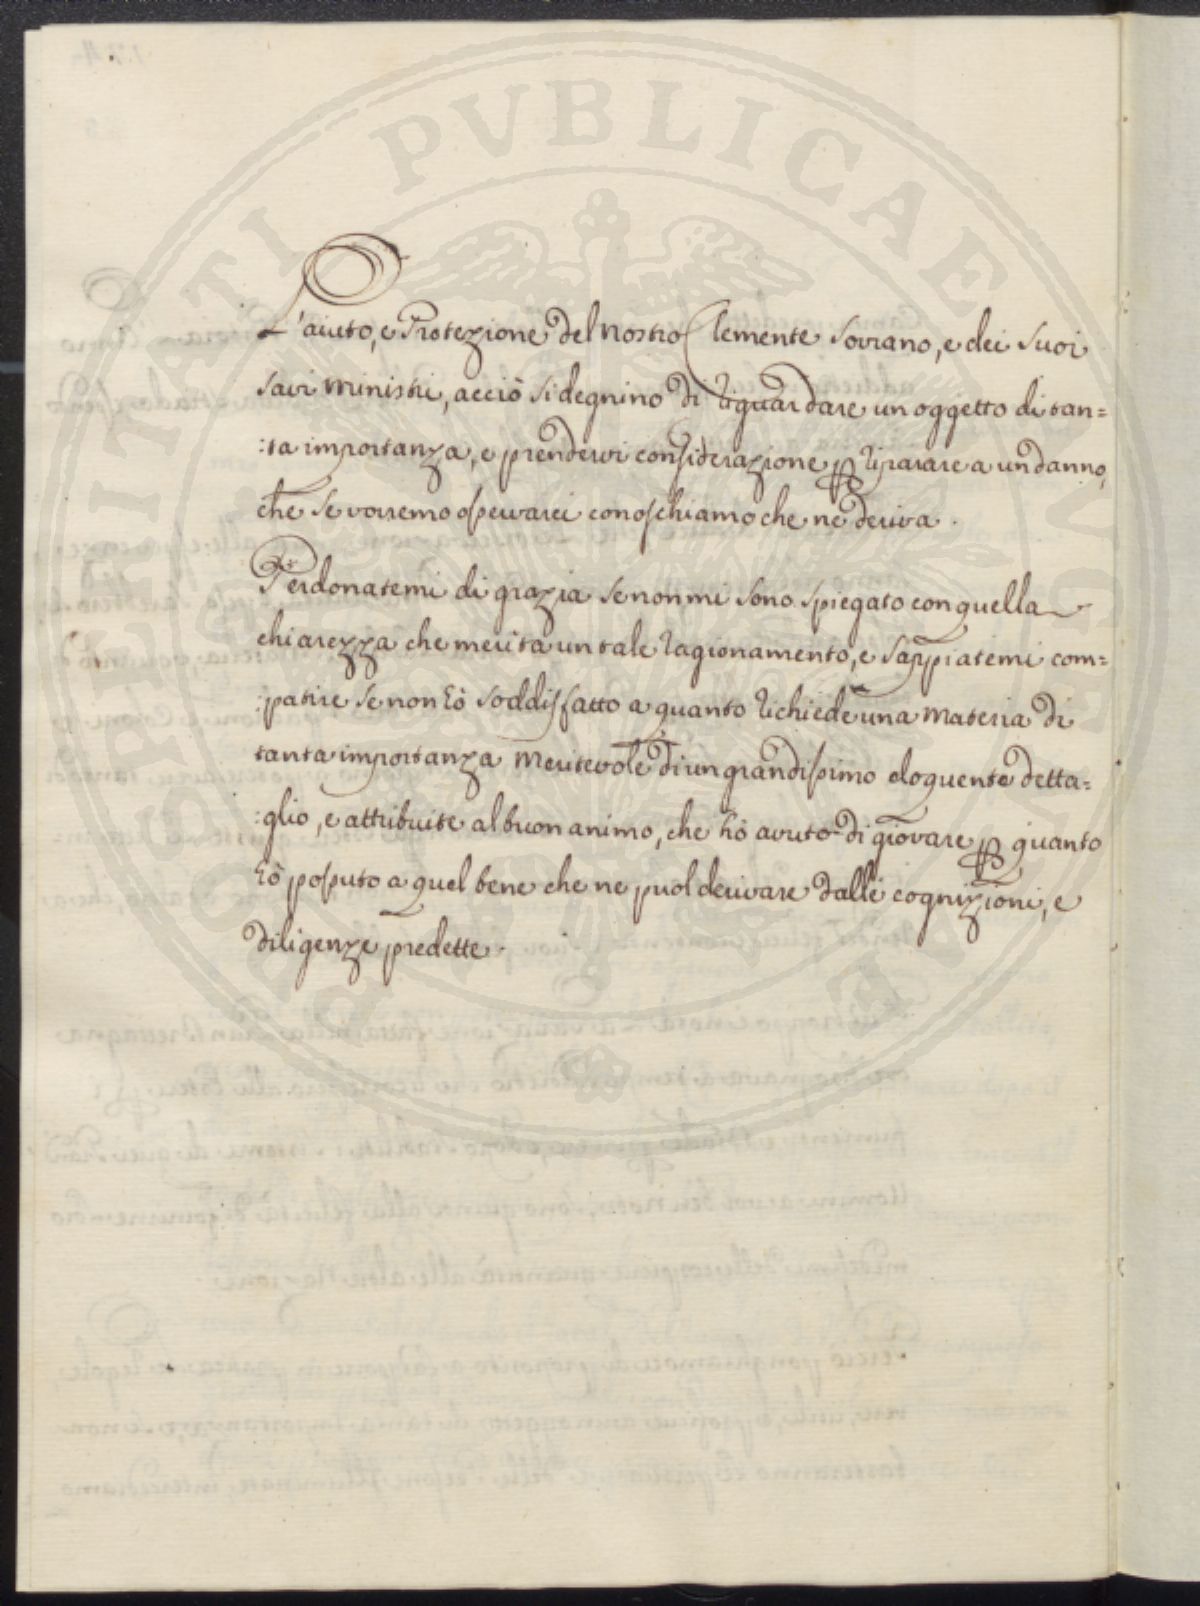 PROSPERITATI PUBLICAE AUGENDAE
L'aiuto, e Protezione del nostro Clemente Sovrano, e dei suoi
savi Ministri, acciò si degnino di riguardare un oggetto di tan=
:ta importanza, e prendervi considerazione p riparare a un danno,
che se vorremo osservarci conoschiamo che ne deriva.
Perdonatemi di grazia se non mi sono spiegato con quella
chiarezza che merita un tale ragionamento, e sappiatemi com=
:patire se non hò soddisfatto a quanto richiede una materia di
tanta importanza meritevole di un grandissimo eloquente detta=
:glio, e attribuite al buon animo, che hò avuto di giovare p quanto
hò possuto a quel bene che ne puol derivare dalle cognizioni, e
diligenze predette.